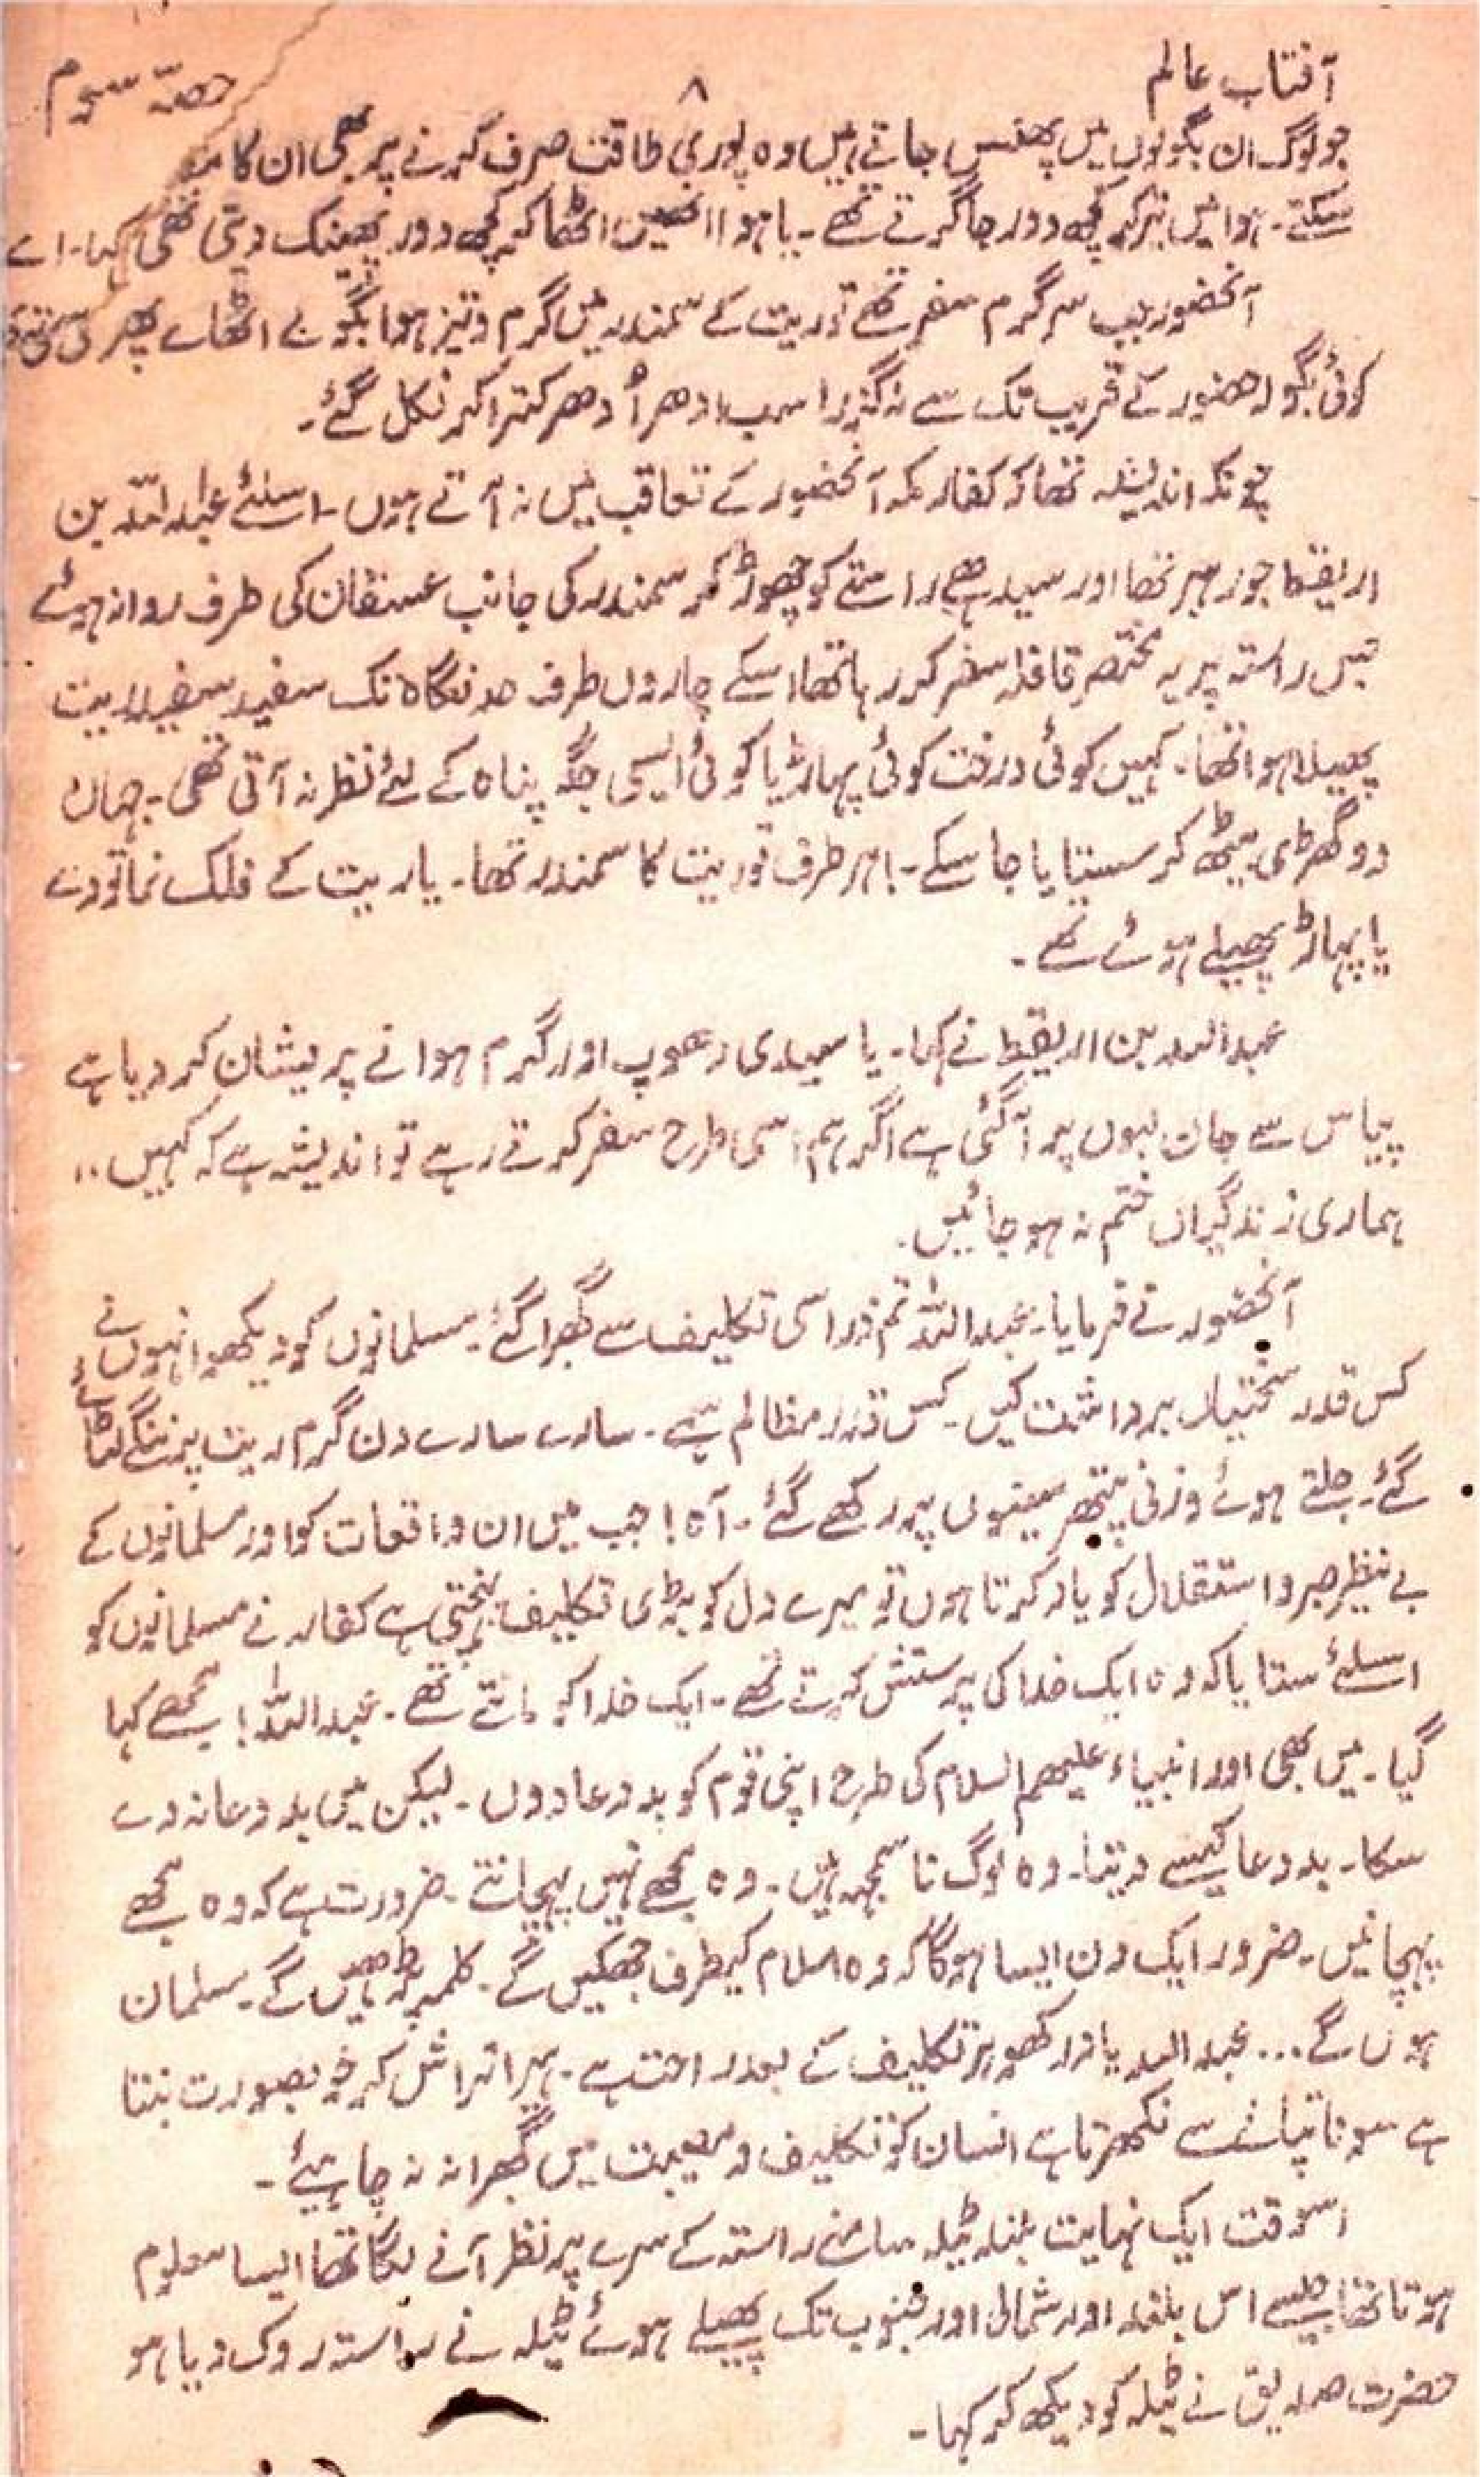 آفتاب عالم ۸ حصّہ سوم
جو لوگ ان بگولوں میں پھنس جاتے ہیں وہ پوری طاقت صرف کرنے پر بھی ان کا
سکتے۔ ہوا میں تیر کر کچھ دور جا گرتے تھے۔ یا ہوا انھیں اٹھا کر کچھ دور پھینک دیتی تھی
آنحضور جب سرگرم سفر تھے تو ریت کے سمندر میں گرم و تیز ہوا بگولے اٹھائے پھر
کوئی بگولہ حضور کے قریب تک سے نہ گذرا سب ادھر اُدھر کترا کر نکل گئے۔
چونکہ اندیشہ تھا کہ کفار مکہ آنحضور کے تعاقب میں نہ آتے ہوں۔ اسلئے عبداللہ بن
اریقط جو رہبر تھا اور سیدھے راستے کو چھوڑ کر سمندر کی جانب عسفان کی طرف روانہ ہوئے
جس راستہ پر یہ مختصر قافلہ سفر کر رہا تھا اسکے چاروں طرف حد نگاہ تک سفید سفید ریت
پھیلا ہوا تھا۔ کہیں کوئی درخت کوئی پہاڑ یا کوئی ایسی جگہ پناہ کے لئے نظر نہ آتی تھی۔ جہاں
دو گھڑی بیٹھ کر سستایا جا سکے۔ ہر طرف تو ریت کا سمندر تھا۔ یا ریت کے فلک نما تودے
یا پہاڑ پھیلے ہوئے تھے۔
عبداللہ بن اریقط نے کہا۔ یا سیدی دھوپ اور گرم ہوا نے پریشان کر دیا ہے
پیاس سے جان لبوں پر آ گئی ہے اگر ہم اسی طرح سفر کرتے رہے تو اندیشہ ہے کہ کہیں ..
ہماری زندگیاں ختم نہ ہو جائیں۔
آنحضور نے فرمایا۔ عبداللہ تم ذرا سی تکلیف سے گھبرا گئے۔ مسلمانوں کو دیکھو انہوں نے
کس قدر سختیاں برداشت کیں۔ کس قدر مظالم سہے۔ سارے سارے دن گرم ریت پر ننگے لٹائے
گئے۔ جلتے ہوئے وزنی پتھر سینوں پر رکھے گئے۔ آہ! جب میں ان واقعات کو اور مسلمانوں کے
بے نظیر صبر و استقلال کو یاد کرتا ہوں تو میرے دل کو بڑی تکلیف پہنچتی ہے کفار نے مسلمانوں کو
اسلئے ستایا کہ وہ ایک خدا کی پرستش کرتے تھے۔ ایک خدا کو مانتے تھے۔ عبداللہ! مجھے کہا
گیا۔ میں بھی اور انبیاء علیہم السلام کی طرح اپنی قوم کو بد دعا دوں۔ لیکن میں بد دعا نہ دے
سکا۔ بد دعا کیسے دیتا۔ وہ لوگ نا سمجھ ہیں۔ وہ مجھے نہیں پہچانتے۔ ضرورت ہے کہ وہ مجھے
پہچانیں۔ ضرور ایک دن ایسا ہوگا کہ وہ اسلام کیطرف جھکیں گے۔ کلمہ پڑھیں گے۔ مسلمان
ہوں گے... عبداللہ یاد رکھو ہر تکلیف کے بعد راحت ہے۔ ہیرا تراش کر خوبصورت بنتا
ہے سونا تپانے سے نکھرتا ہے انسان کو تکلیف و مصیبت میں گھبرانہ نہ چاہیئے۔
اسوقت ایک نہایت بلند ٹیلہ سامنے راستہ کے سرے پر نظر آنے لگا تھا ایسا معلوم
ہوتا تھا جیسے اس بلند اور شمال اور جنوب تک پھیلے ہوئے ٹیلہ نے راستہ روک دیا ہو
حضرت صدیق نے ٹیلہ کو دیکھ کر کہا۔